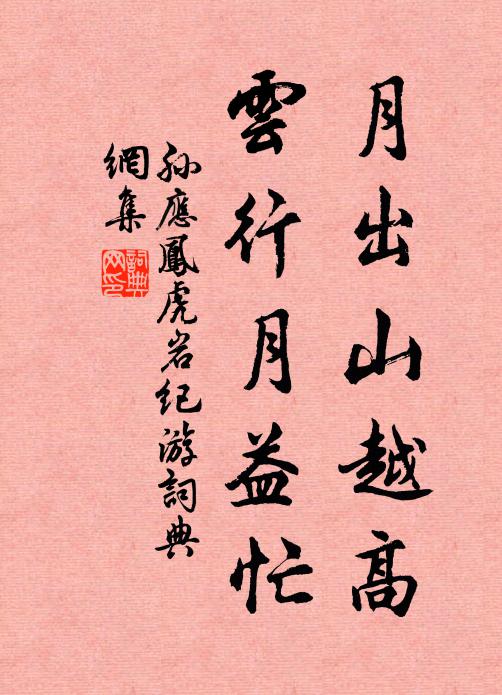 月出山越高
雲行月益忙
孫應鳳虎岩纪游詞典
網集
詞典
网印